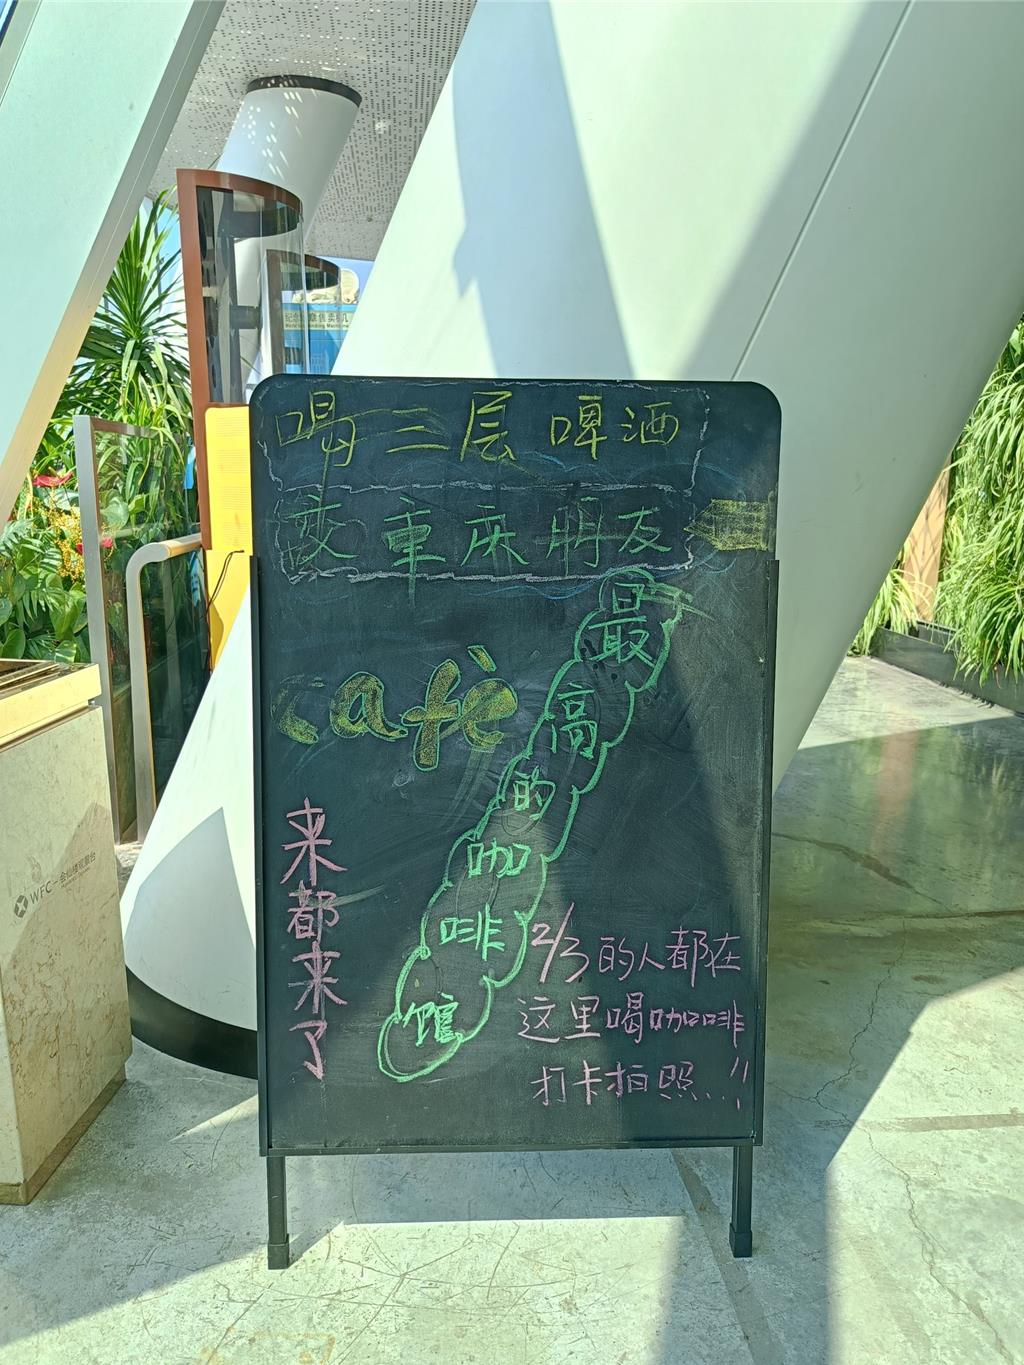 喝三层啤酒
交重庆朋友
café
最高的咖啡馆
来都来了
2/3的人都在
这里喝咖啡
打卡拍照!!
WFC-会仙楼观景台